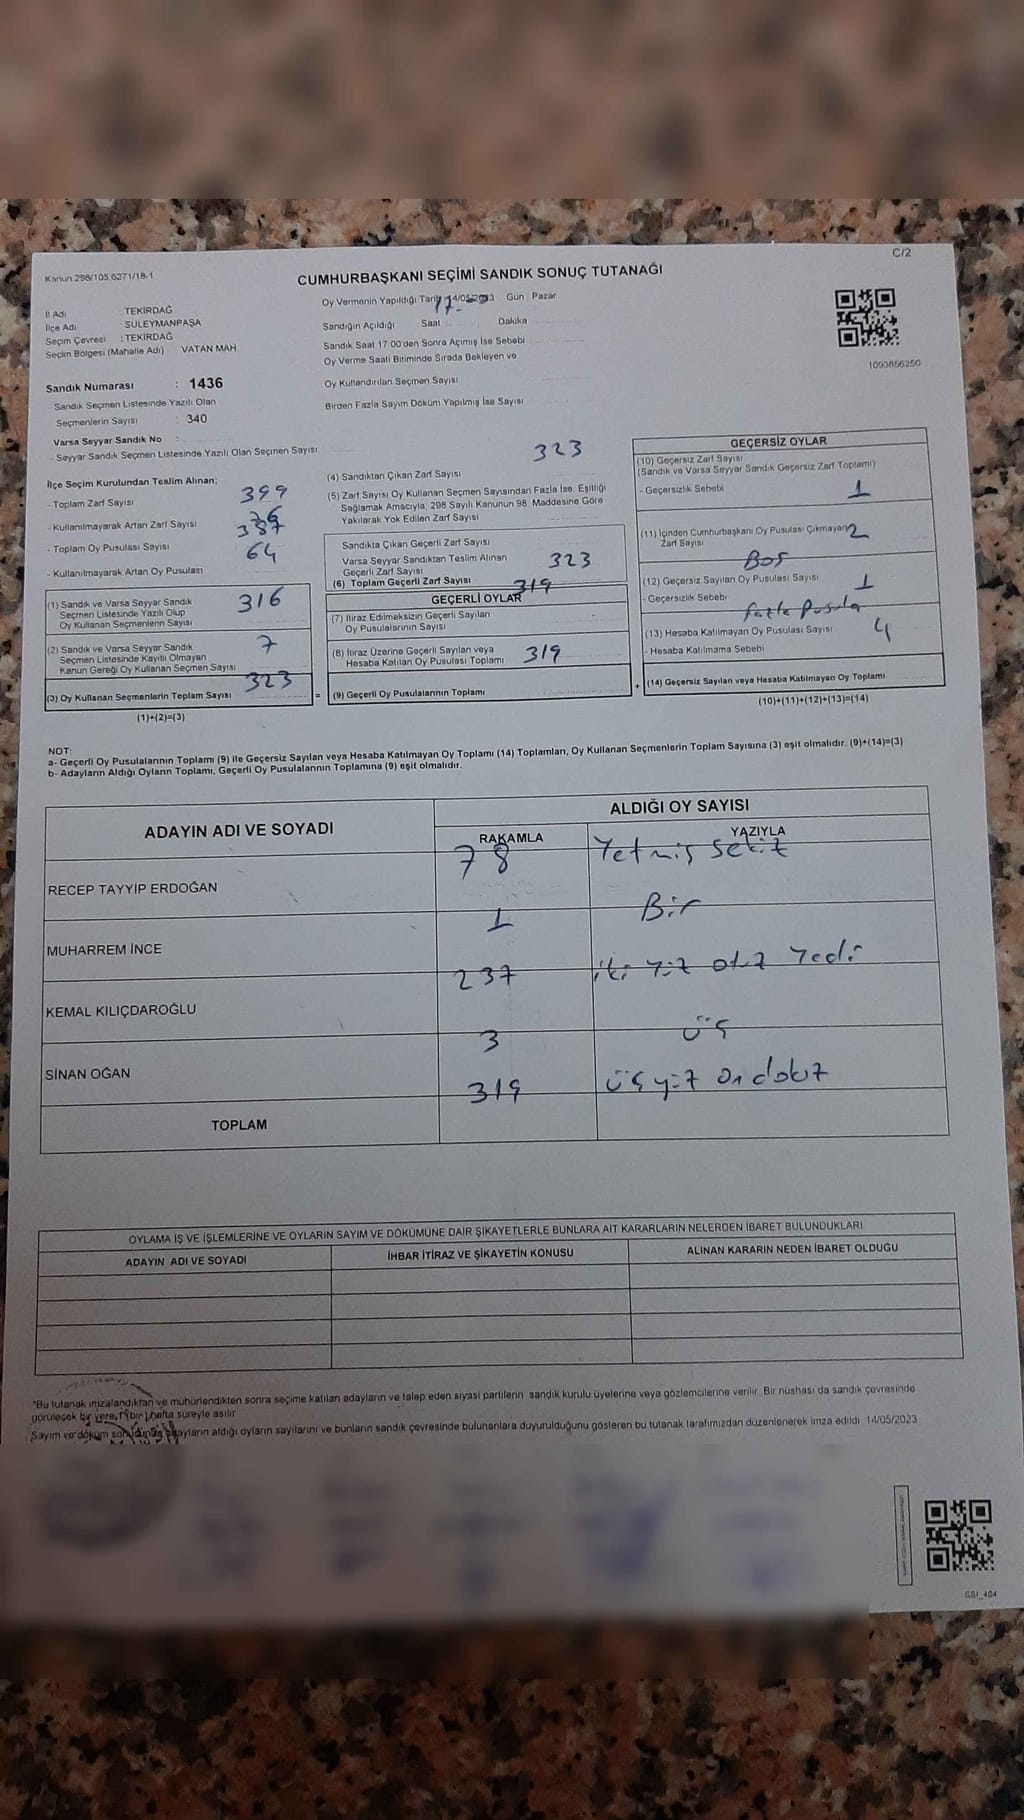 Kanun:298/105,6271/18-1
C/2
CUMHURBAŞKANI SEÇİMİ SANDIK SONUÇ TUTANAĞI
İl Adı : TEKİRDAĞ
İlçe Adı : SÜLEYMANPAŞA
Seçim Çevresi : TEKİRDAĞ
Seçim Bölgesi (Mahalle Adı) VATAN MAH
Sandık Numarası : 1436
- Sandık Seçmen Listesinde Yazılı Olan
Seçmenlerin Sayısı : 340
Varsa Seyyar Sandık No :
- Seyyar Sandık Seçmen Listesinde Yazılı Olan Seçmen Sayısı:
Oy Vermenin Yapıldığı Tarih 14/05/2023 Gün : Pazar
17
Sandığın Açıldığı Saat Dakika
Sandık Saat 17:00'den Sonra Açımış İse Sebebi
Oy Verme Saati Bitiminde Sırada Bekleyen ve
Oy Kullandırılan Seçmen Sayısı
Birden Fazla Sayım Döküm Yapılmış İse Sayısı
1093856250
İlçe Seçim Kurulundan Teslim Alınan;
399
- Toplam Zarf Sayısı
76
- Kullanılmayarak Artan Zarf Sayısı
387
- Toplam Oy Pusulası Sayısı
64
- Kullanılmayarak Artan Oy Pusulası
(1) Sandık ve Varsa Seyyar Sandık 316
Seçmen Listesinde Yazılı Olup
Oy Kullanan Seçmenlerin Sayısı
(2) Sandık ve Varsa Seyyar Sandık 7
Seçmen Listesinde Kayıtlı Olmayan
Kanun Gereği Oy Kullanan Seçmen Sayısı
323
(3) Oy Kullanan Seçmenlerin Toplam Sayısı =
(1)+(2)=(3)
323
(4) Sandıktan Çıkan Zarf Sayısı
(5) Zarf Sayısı Oy Kullanan Seçmen Sayısından Fazla İse, Eşitliği
Sağlamak Amacıyla, 298 Sayılı Kanunun 98. Maddesine Göre
Yakılarak Yok Edilen Zarf Sayısı
Sandıkta Çıkan Geçerli Zarf Sayısı
Varsa Seyyar Sandıktan Teslim Alınan 323
Geçerli Zarf Sayısı
(6) Toplam Geçerli Zarf Sayısı
319
GEÇERLİ OYLAR
(7) İtiraz Edilmeksizin Geçerli Sayılan
Oy Pusulalarının Sayısı
(8) İtiraz Üzerine Geçerli Sayılan veya 319
Hesaba Katılan Oy Pusulası Toplamı
(9) Geçerli Oy Pusulalarının Toplamı +
GEÇERSİZ OYLAR
(10) Geçersiz Zarf Sayısı
(Sandık ve Varsa Seyyar Sandık Geçersiz Zarf Toplamı)
- Geçersizlik Sebebi 1
(11) İçinden Cumhurbaşkanı Oy Pusulası Çıkmayan 2
Zarf Sayısı
Boş
(12) Geçersiz Sayılan Oy Pusulası Sayısı 1
- Geçersizlik Sebebi
fazla pusula
(13) Hesaba Katılmayan Oy Pusulası Sayısı 4
- Hesaba Katılmama Sebebi
(14) Geçersiz Sayılan veya Hesaba Katılmayan Oy Toplamı
(10)+(11)+(12)+(13)=(14)
NOT:
a- Geçerli Oy Pusulalarının Toplamı (9) ile Geçersiz Sayılan veya Hesaba Katılmayan Oy Toplamı (14) Toplamları, Oy Kullanan Seçmenlerin Toplam Sayısına (3) eşit olmalıdır. (9)+(14)=(3)
b- Adayların Aldığı Oyların Toplamı, Geçerli Oy Pusulalarının Toplamına (9) eşit olmalıdır.
ADAYIN ADI VE SOYADI
ALDIĞI OY SAYISI
RAKAMLA YAZIYLA
78 Yetmiş sekiz
RECEP TAYYİP ERDOĞAN
1 Bir
MUHARREM İNCE
237 iki yüz otuz Yedi
KEMAL KILIÇDAROĞLU
3 üç
SİNAN OĞAN
319 üçyüz On dokuz
TOPLAM
OYLAMA İŞ VE İŞLEMLERİNE VE OYLARIN SAYIM VE DÖKÜMÜNE DAİR ŞİKAYETLERLE BUNLARA AİT KARARLARIN NELERDEN İBARET BULUNDUKLARI
ADAYIN ADI VE SOYADI İHBAR İTİRAZ VE ŞİKAYETİN KONUSU ALINAN KARARIN NEDEN İBARET OLDUĞU
*Bu tutanak imzalandıktan ve mühürlendikten sonra seçime katılan adayların ve talep eden siyasi partilerin sandık kurulu üyelerine veya gözlemcilerine verilir. Bir nüshası da sandık çevresinde
görülecek bir yere, 1 (bir) hafta süreyle asılır.
Sayım ve döküm sonucunda adayların aldığı oyların sayılarını ve bunların sandık çevresinde bulunanlara duyurulduğunu gösteren bu tutanak tarafımızdan düzenlenerek imza edildi. 14/05/2023